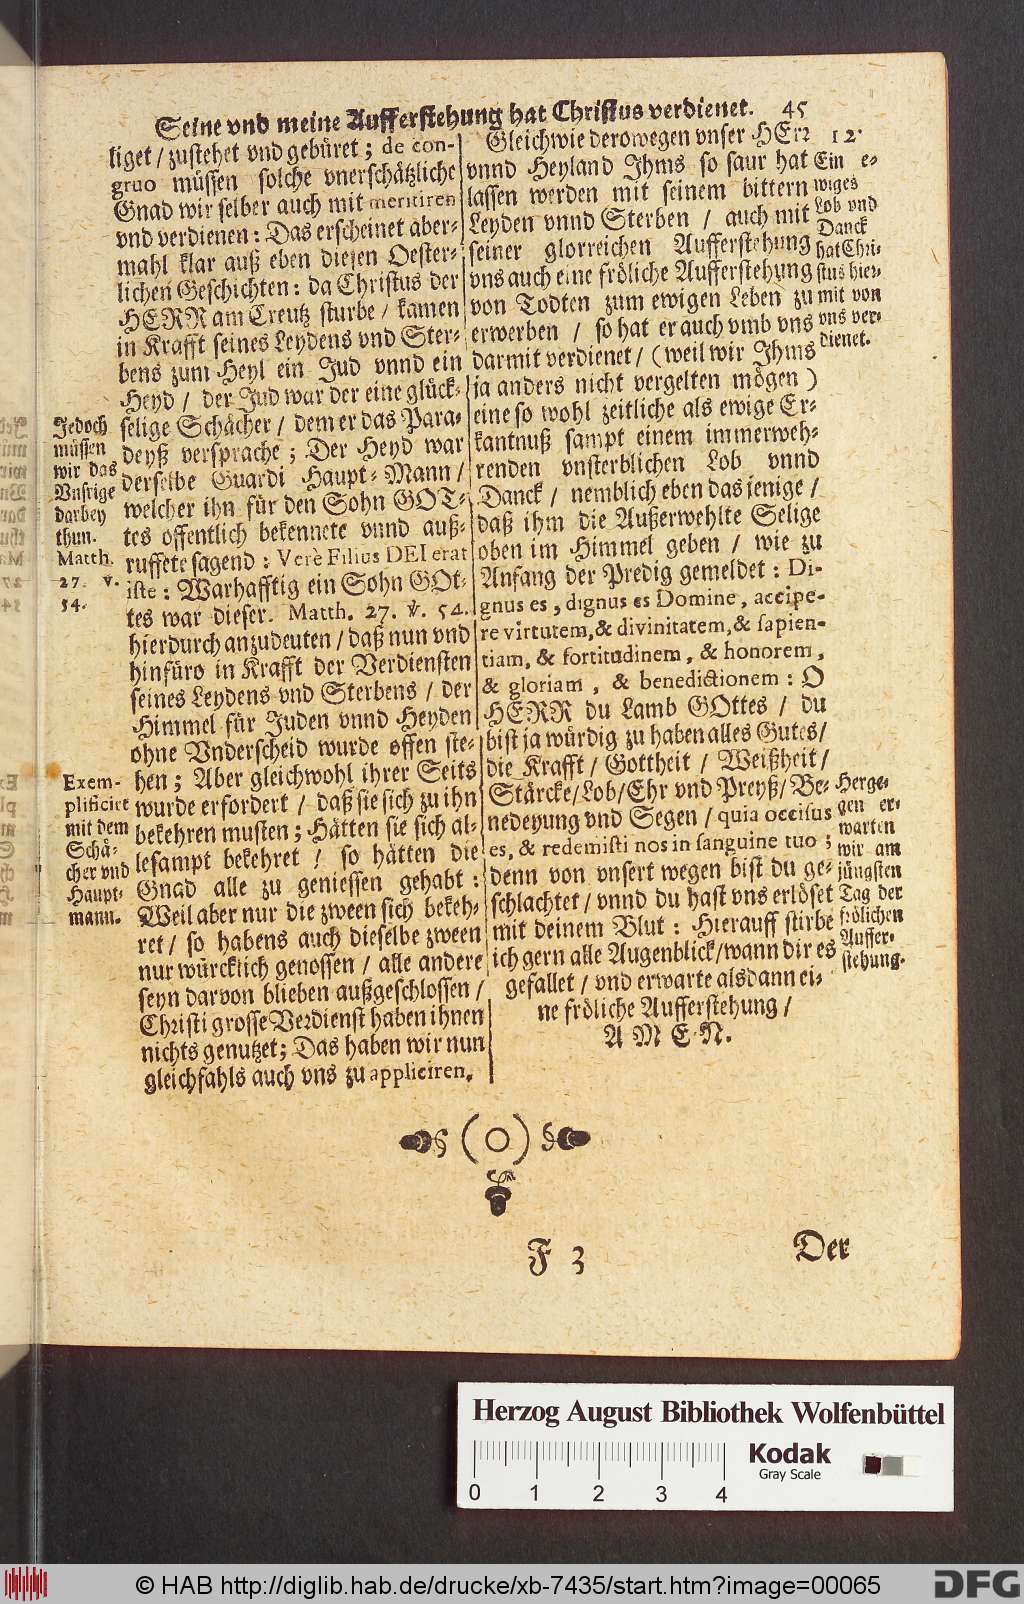 Seine vnd meine Aufferstehung hat Christus verdienet. 45
liget / zustehet vnd gebüret; de con-
gruo müssen solche vnerschätzliche
Gnad wir selber auch mit meritiren
vnd verdienen: Das erscheinet aber-
mahl klar auß eben diesen Oester-
lichen Geschichten: da Christus der
HERR am Creutz sturbe / kamen
in Krafft seines Leydens vnd Ster-
bens zum Heyl ein Jud vnnd ein
Heyd / der Jud war der eine glück-
selige Schächer / dem er das Para-
deyß versprache; Der Heyd war
derselbe Guardi Haupt-Mann /
welcher ihn für den Sohn GOT-
tes öffentlich bekennete vnnd auß-
ruffete sagend: Verè Filius DEI erat
iste: Warhafftig ein Sohn GOt-
tes war dieser. Matth. 27. ℣. 54.
hierdurch anzudeuten / daß nun vnd
hinfüro in Krafft der Verdiensten
seines Leydens vnd Sterbens / der
Himmel für Juden vnnd Heyden
ohne Vnderscheid wurde offen ste-
hen; Aber gleichwohl ihrer Seits
wurde erfordert / daß sie sich zu ihn
bekehren musten; Hätten sie sich al-
lesampt bekehret / so hätten die
Gnad alle zu geniessen gehabt:
Weil aber nur die zween sich bekeh-
ret / so habens auch dieselbe zween
nur würcklich genossen / alle andere
seyn darvon blieben außgeschlossen /
Christi grosse Verdienst haben ihnen
nichts genutzet; Das haben wir nun
gleichfahls auch vns zu appliciren.
Jedoch
müssen
wir das
Vnsrige
darbey
thun.
Matth.
27. v.
54.
Exem-
plificirt
mit dem
Schä-
cher vnd
Haupt-
mann.
Gleichwie derowegen vnser HErr
vnnd Heyland Ihms so saur hat
lassen werden mit seinem bittern
Leyden vnnd Sterben / auch mit
seiner glorreichen Aufferstehung
vns auch eine fröliche Aufferstehung
von Todten zum ewigen Leben zu
erwerben / so hat er auch vmb vns
darmit verdienet / (weil wir Ihms
ja anders nicht vergelten mögen)
eine so wohl zeitliche als ewige Er-
kantnuß sampt einem immerweh-
renden vnsterblichen Lob vnnd
Danck / nemblich eben das jenige /
daß ihm die Außerwehlte Selige
oben im Himmel geben / wie zu
Anfang der Predig gemeldet: Di-
gnus es, dignus es Domine, accipe-
re virtutem, & divinitatem, & sapien-
tiam, & fortitudinem, & honorem,
& gloriam, & benedictionem: O
HERR du Lamb GOttes / du
bist ja würdig zu haben alles Gutes /
die Krafft / Gottheit / Weißheit /
Stärcke / Lob / Ehr vnd Preyß / Be-
nedeyung vnd Segen / quia occisus
es, & redemisti nos in sanguine tuo;
denn von vnsert wegen bist du ge-
schlachtet / vnnd du hast vns erlöset
mit deinem Blut: Hierauff stirbe
ich gern alle Augenblick / wann dir es
gefallet / vnd erwarte alsdann ei-
ne fröliche Aufferstehung /
AMEN.
12.
Ein e-
wiges
Lob vnd
Danck
hat Chri-
stus hier-
mit von
vns ver-
dienet.
Herge-
gen er-
warten
wir am
jüngsten
Tag der
frölichen
Auffer-
stehung.
F 3
Der
Herzog August Bibliothek Wolfenbüttel
Kodak
Gray Scale
0 1 2 3 4
© HAB http://diglib.hab.de/drucke/xb-7435/start.htm?image=00065
DFG